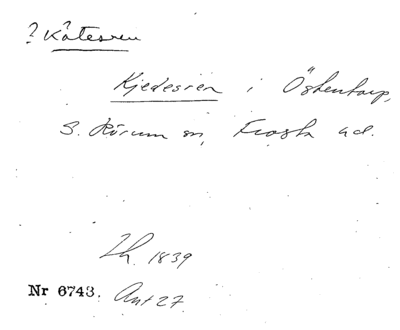 ? Kåtesren
Kjedesren i Östentorp,
S. Rörum sn, Frosta hd.
Lh. 1839
Nr 6743. Ant 27